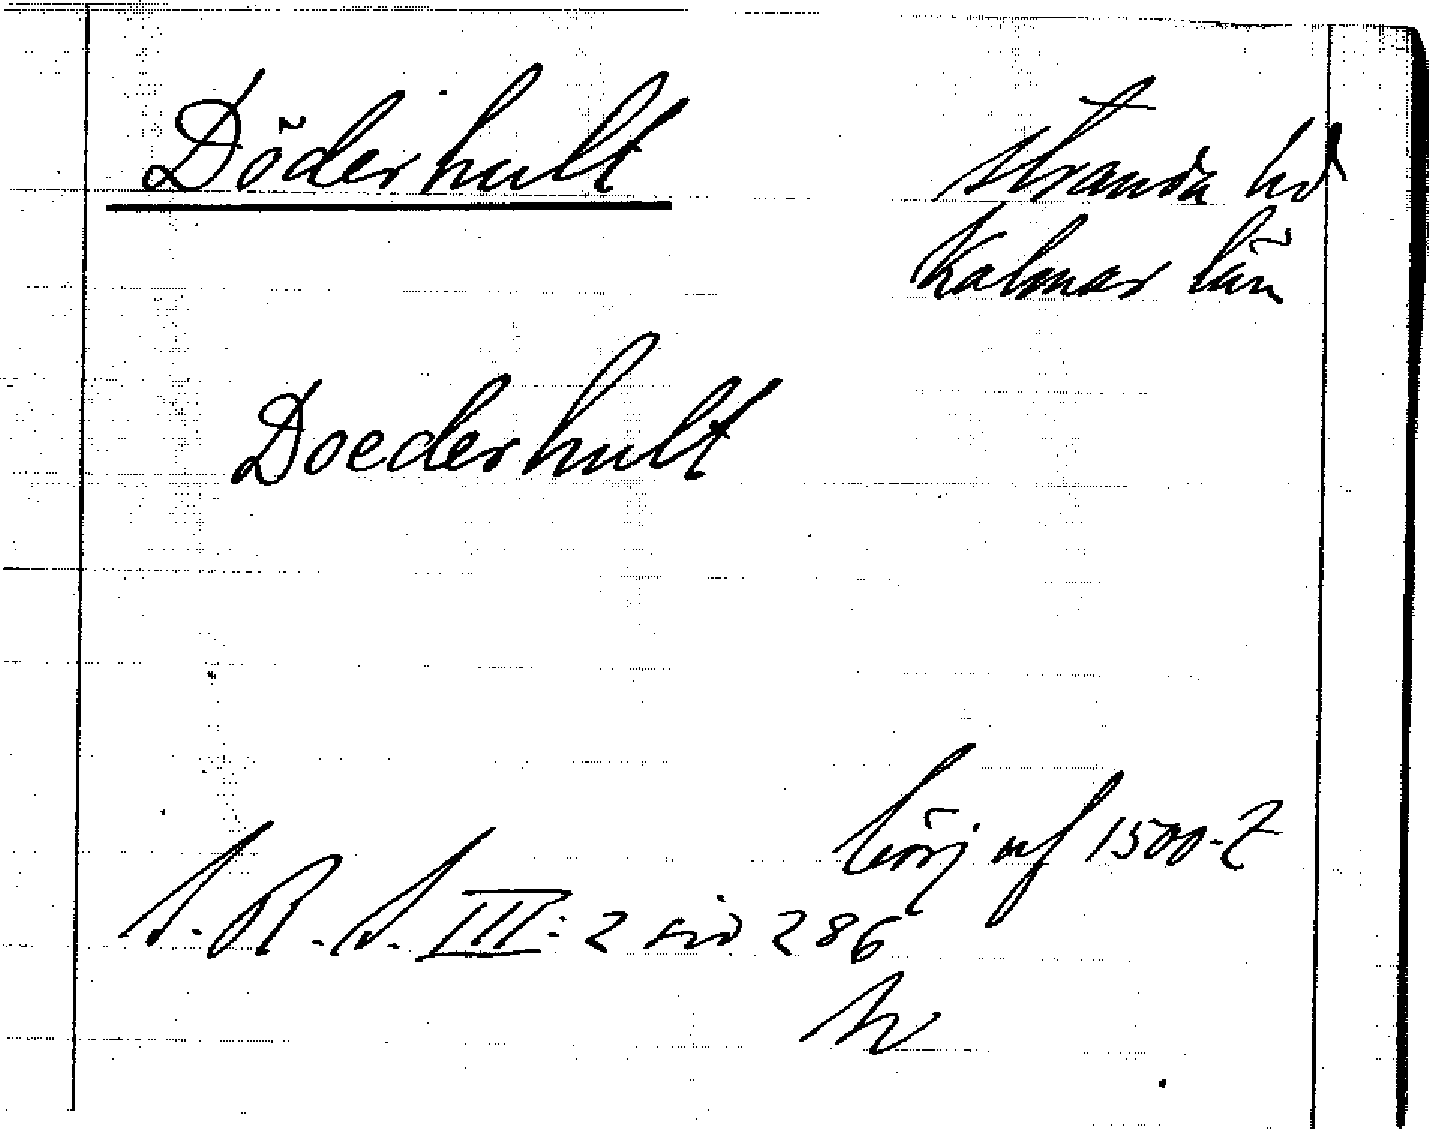 Döderhult
Stranda hd
Kalmar län
Doederhult
börj af 1500-t
S. R. S. III: 2 sid 286